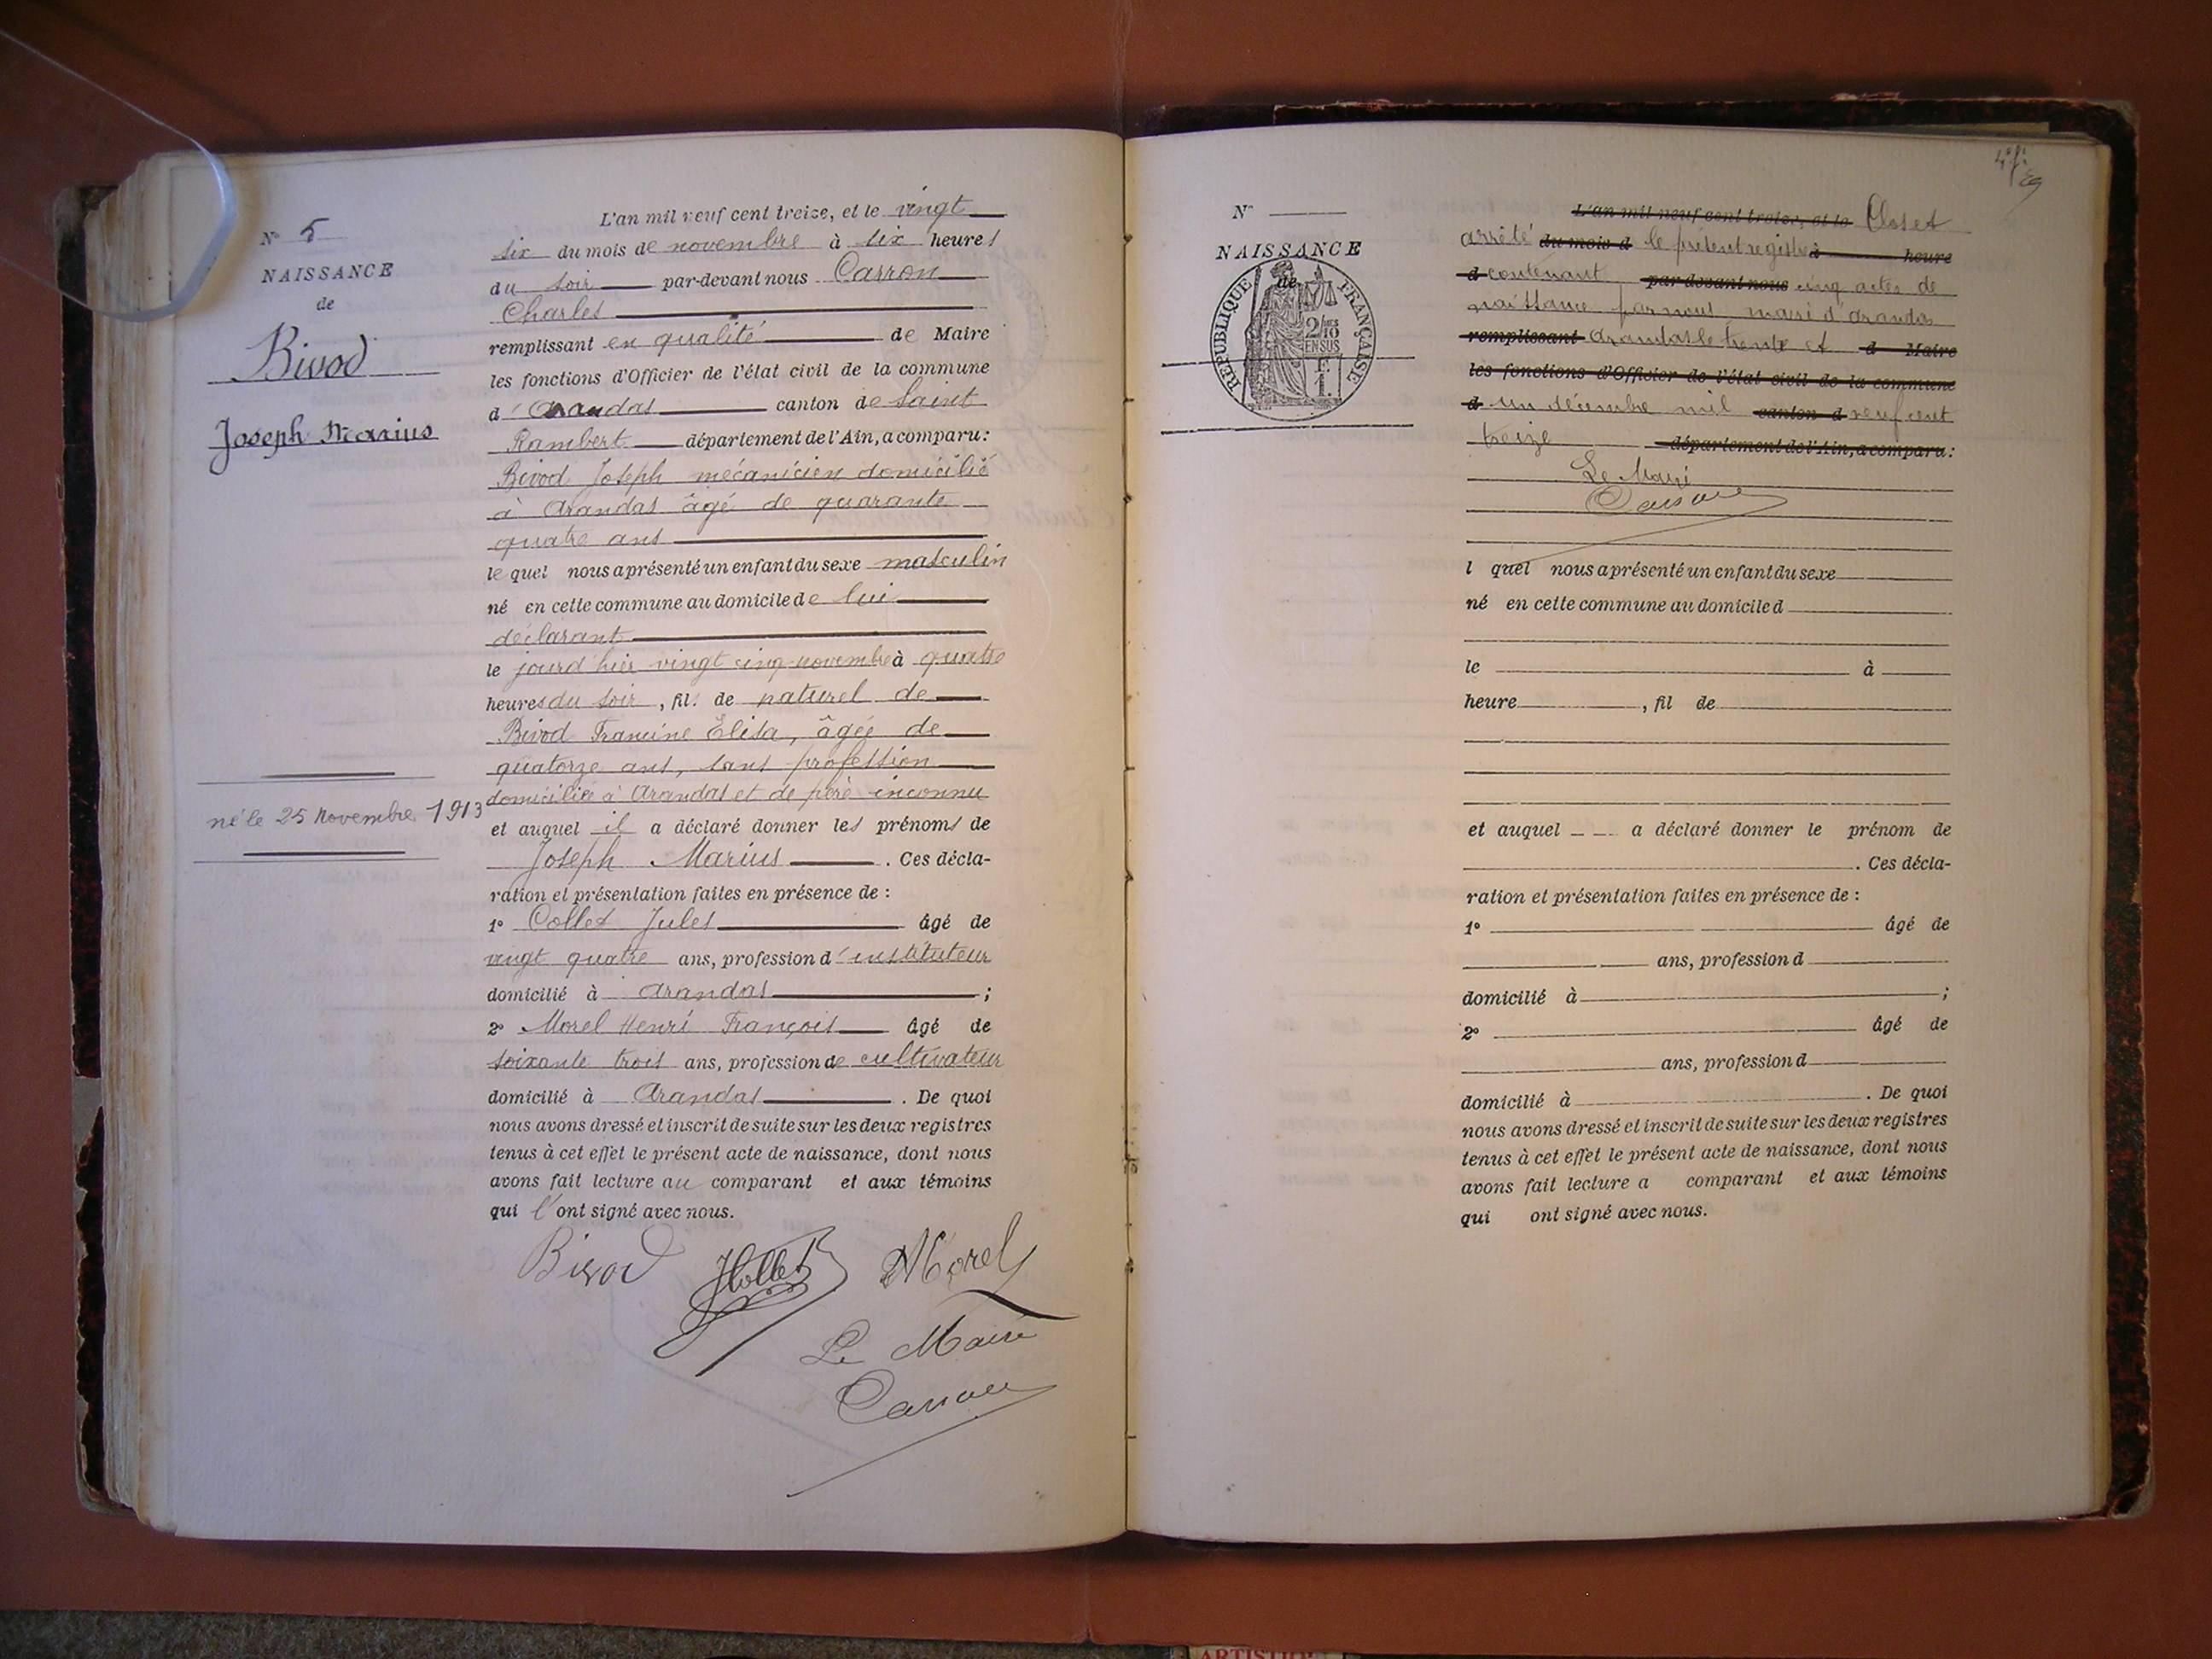 N° 5
NAISSANCE
de
Bivod
Joseph Marius
né le 25 Novembre 1913
L'an mil neuf cent treize, et le vingt
six du mois de novembre à six heures
du soir par-devant nous Carron
Charles
remplissant en qualité de Maire
les fonctions d'Officier de l'état civil de la commune
d'Arandas canton de Saint
Rambert département de l'Ain, a comparu :
Bivod Joseph mécanicien domicilié
à Arandas âgé de quarante
quatre ans
lequel nous a présenté un enfant du sexe masculin
né en cette commune au domicile de lui
déclarant
le jourd'hier vingt cinq novembre à quatre
heures du soir, fils de naturel de
Bivod Francine Elisa, âgée de
quatorze ans, sans profession
domiciliée à Arandas et de père inconnu
et auquel il a déclaré donner les prénoms de
Joseph Marius. Ces décla-
ration et présentation faites en présence de :
1° Collet Jules âgé de
vingt quatre ans, profession d'instituteur
domicilié à Arandas ;
2° Morel Henri François âgé de
soixante trois ans, profession de cultivateur
domicilié à Arandas. De quoi
nous avons dressé et inscrit de suite sur les deux registres
tenus à cet effet le présent acte de naissance, dont nous
avons fait lecture au comparant et aux témoins
qui l'ont signé avec nous.
Bivod JCollet Morel
Le Maire
Carron
N°
NAISSANCE
de
RÉPUBLIQUE FRANÇAISE
2/10 EN SUS
F. 1.
L'an mil neuf cent treize, et le Clos et
arrêté du mois d le présent registre à heure
d contenant par-devant nous cinq actes de
naissance par nous maire d'Arandas
remplissant Arandas le trente et d Maire
les fonctions d'Officier de l'état civil de la commune
d un décembre mil canton d neuf cent
treize département de l'Ain, a comparu :
Le Maire
Carron
l quel nous a présenté un enfant du sexe
né en cette commune au domicile d
le à
heure , fil de
et auquel a déclaré donner le prénom de
. Ces décla-
ration et présentation faites en présence de :
1° âgé de
ans, profession d
domicilié à ;
2° âgé de
ans, profession d
domicilié à . De quoi
nous avons dressé et inscrit de suite sur les deux registres
tenus à cet effet le présent acte de naissance, dont nous
avons fait lecture a comparant et aux témoins
qui ont signé avec nous.